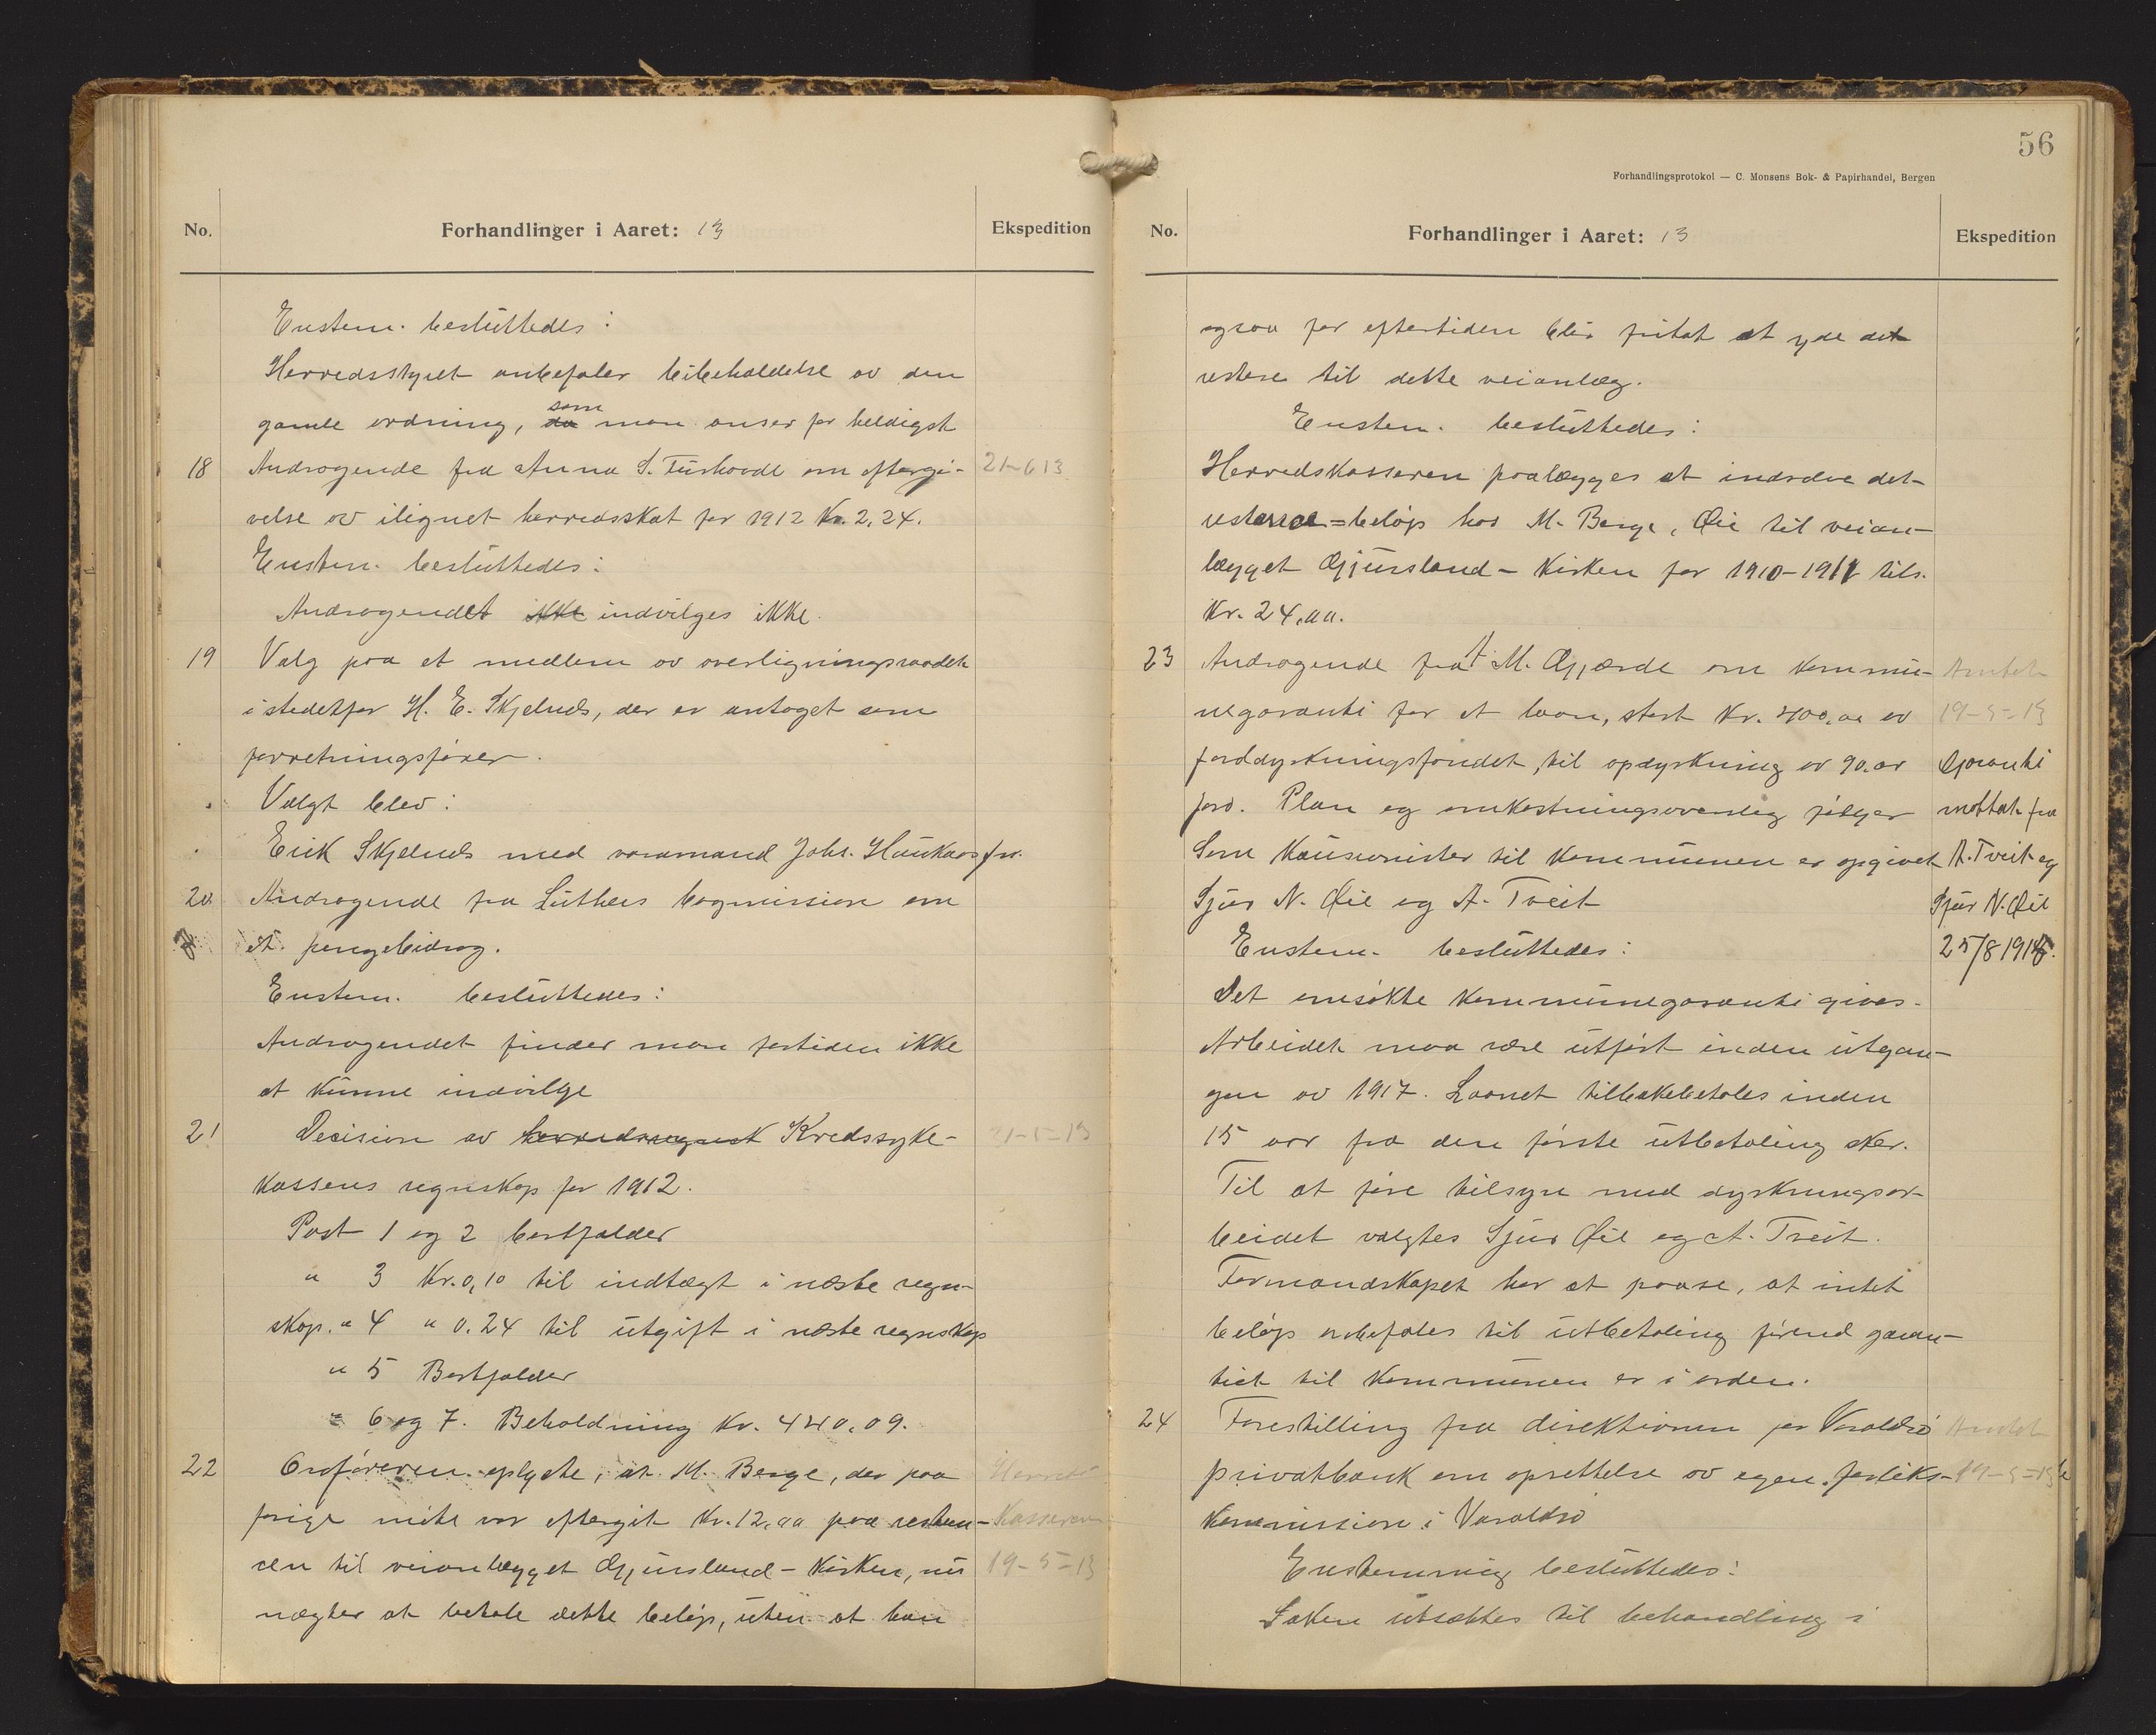 No.
Forhandlinger i Aaret: 13
Ekspedition
Enstem. besluttedes:
Herredsstyret anbefaler bibeholdelse av den
gamle ordning, da som man anser for heldigst
18 Androgende fra Anna S. om eftergi- 21-6 13
velse av ilignet herredsskat for 1912 Kr. 2,24.
Enstem. besluttedes:
Andragendet ikke indvilges ikke.
19 Valg paa et medlem av overligningsraadet
i stedetfor H. E. Skjelnes, der er antaget som
forretningsfører.
Valgt blev:
Erik Skjelnes med varamand Johs. Haukaas fr.
20 Andragende fra Luthers bogmission om
et pengebidrag.
Enstem. besluttedes:
Andragendet finder man fortiden ikke
at kunne indvilge
21 Decision av herredsregnsk Kredssyke- 21-5-13
kassens regnskap for 1912.
Post 1 og 2 bortfalder
" 3 Kr. 0,10 til indtægt i næste regn-
skap. " 4 " 0.24 til utgift i næste regnskap
" 5 Bortfalder
" 6 og 7. Beholdning Kr. 440.09.
22 Ordføreren oplyste, at M. Berge, der paa Herreds
forige møte var eftergit Kr. 12,00 paa restan- Kasseren
cen til veianlægget Gjuvsland - Kirken, nu 19-5-13
nægter at betale dette beløp, uten at han
56
Forhandlingsprotokol — C. Monsens Bok- & Papirhandel, Bergen
No.
Forhandlinger i Aaret: 13
Ekspedition
ogsaa for eftertiden blir fritat at yde det
resterende til dette veianlæg.
Enstem. besluttedes:
Herredskasseren paalægges at inddrive det
resterende beløp hos M. Berge, Øie til veian-
lægget Gjuvsland - Kirken for 1910-1911 tils.
Kr. 24,00.
23 Andragende fra A M. Gjærde om kommu- Amtet
negaranti for et laan, stort Kr. 400,00 av 19-5-13
jorddyrkningsfondet, til opdyrkning av 90. ar Garanti
jord. Plan og omkostningsoverslag følger mottat fra
Som kausionister til kommunen er opgivet A. Tveit og
Sjur N. Øie og A. Tveit Sjur N. Øie
Enstem. besluttedes: 25/8 1915.
Det ansøkte kommunegaranti gives.
Arbeidet maa være utført inden utgan-
gen av 1917. Laanet tilbakebetales inden
15 aar fra den første utbetaling sker.
Til at føre tilsyn med dyrkningsar-
beidet valgtes Sjur Øie og A. Tveit.
Formandskapet har at paase, at intet
beløp anbefales til utbetaling førend garan-
tiet til kommunen er i orden.
24 Forestilling fra direktionen for Varaldsø Amtet
privatbank om oprettelse av egen forliks- 19-5-13
kommission i Varaldsø
Enstemmig besluttedes:
Saken utsættes til behandling i